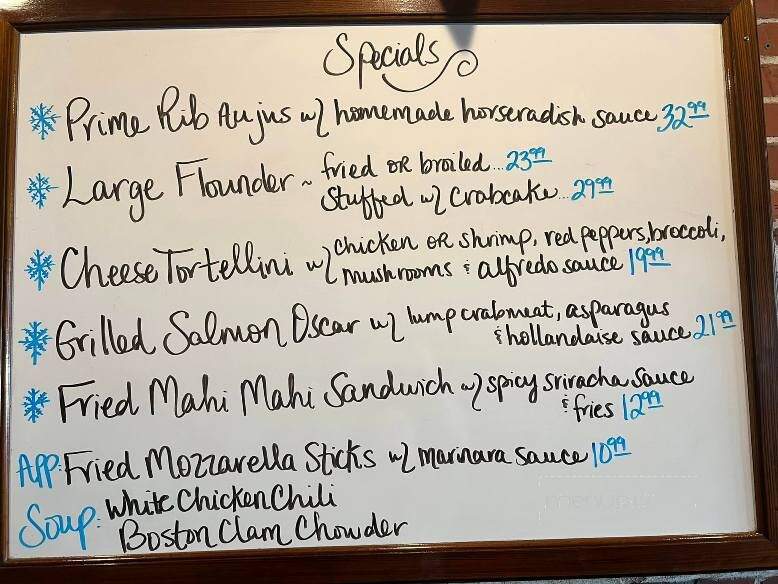 Specials
Prime Rib Au jus w/ homemade horseradish sauce 32.99
Large Flounder ~ fried or broiled...23.99
Stuffed w/ Crabcake...29.99
Cheese Tortellini w/ chicken or shrimp, red peppers, broccoli,
mushrooms & alfredo sauce 19.99
Grilled Salmon Oscar w/ lump crabmeat, asparagus
& hollandaise sauce 21.99
Fried Mahi Mahi Sandwich w/ spicy sriracha sauce
& fries 12.99
APP: Fried Mozzarella Sticks w/ marinara sauce 10.99
Soup: White Chicken Chili
Boston Clam Chowder